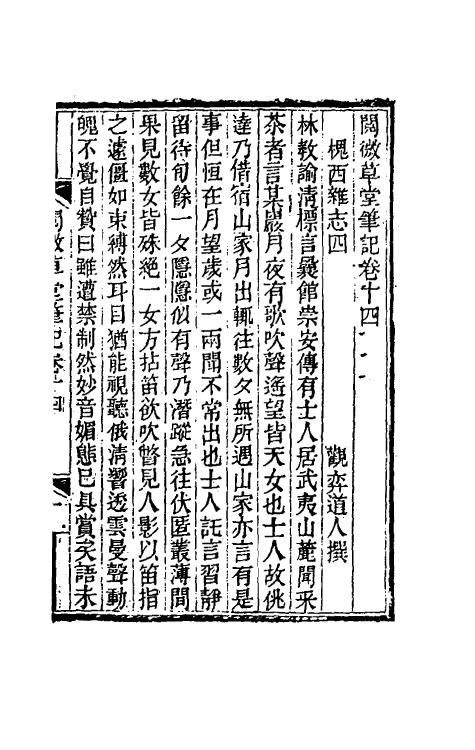 閱微草堂筆記卷十四
槐西雜志四
觀弈道人撰
林教諭清標言曩館崇安傳有士人居武夷山麓聞采
茶者言某巖月夜有歌吹聲遙望皆天女也士人故佻
達乃借宿山家月出輒往數夕無所遇山家亦言有是
事但恒在月望歲或一兩聞不常出也士人託言習靜
留待旬餘一夕隱隱似有聲乃潛蹤急往伏匿叢薄間
果見數女皆殊絕一女方拈笛欲吹瞥見人影以笛指
之遽僵如束縛然耳目猶能視聽俄清響透雲曼聲動
魄不覺自贊曰雖遭禁制然妙音媚態已具賞矣語未
閱微草堂筆記卷十四